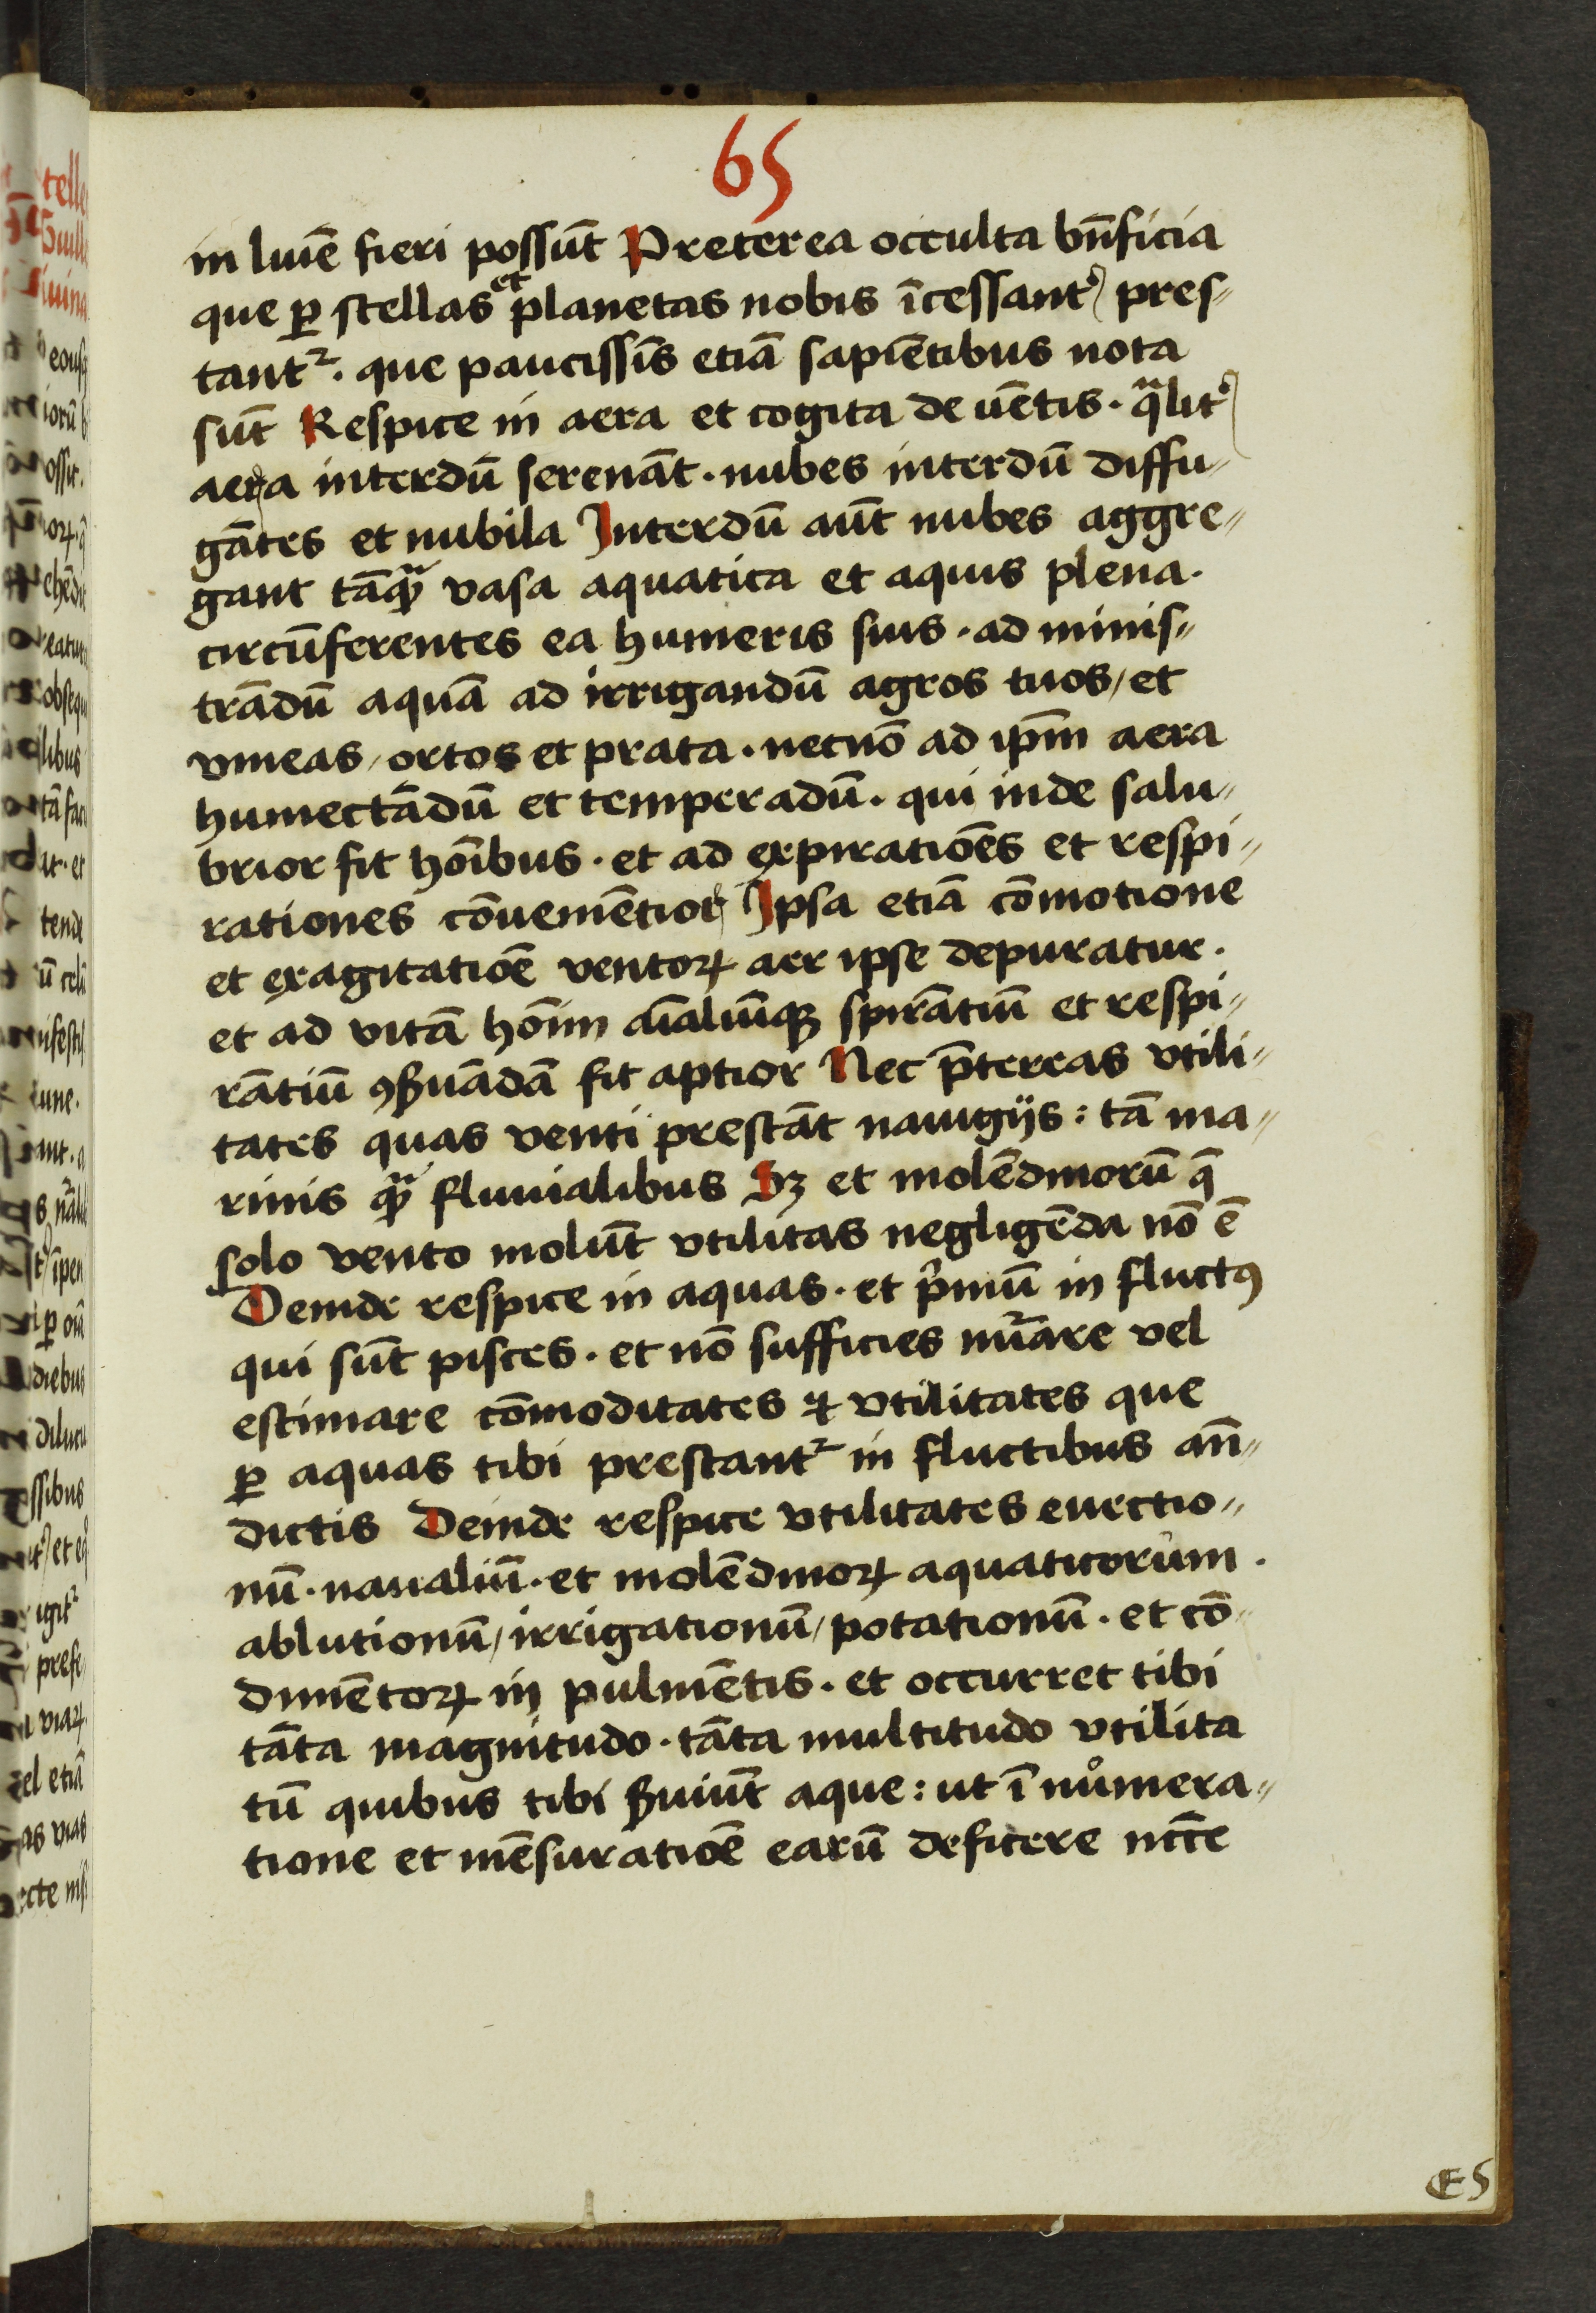 65
in luiē fieri possūt Preterea occulta bn̄ficia
que ꝑ stellas et planetas nobis īcessantˀ pres-
tantᷣ. que paucissīs etiā sapiētibus nota
sūt Respice in aera et cogita de uētis. qͣlitˀ
aera interdū serenāt. nubes interdū diffu-
gātes et nubila Interdū aūt nubes aggre-
gant tāqͣꝫ vasa aquatica et aquis plena.
circūferentes ea humeris suis. ad minis-
trādū aquā ad irrigandū agros tuos, et
vineas, ortos et prata. necnō ad ip̄m aera
humectādū et temperadū. qui inde salu-
brior fit hoībus. et ad expiratiōēs et respi-
rationes cōueniētior Ipsa etiā cōmotione
et exagitatiōe ventoꝝ aer ipse depuratur.
et ad vitā hoīm aīaliūqꝫ spirātiū et respi-
rātiū ꝯẜuādā fit aptior Nec p̄tereas vtili-
tates quas venti prestāt nauigijs: tā ma-
rinis qͣꝫ fluuialibus Sꝫ et molēdinorū q̄
solo vento molūt vtilitas negligēda nō ē
Deinde respice in aquas. et pͥmū in fluctꝰ
qui sūt pisces. et nō sufficies nūᷣare vel
estimare cōmoditates ⁊ vtilitates que
ꝑ aquas tibi prestantᷣ in fluctibus an̄-
dictis Deinde respice vtilitates euectio-
nū. naualiū. et molēdinoꝝ aquaticorum.
ablutionū, irrigationū, potationū. et cō-
dimētoꝝ in pulmētis. et occurret tibi
tāta magnitudo. tāta multitudo vtilita
tū quibus tibi ẜuiūt aque: ut ī numera-
tione et mēsuratiōe earū deficere nc̄c̄e
E5